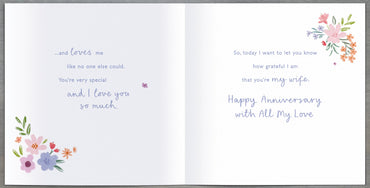 ...and loves me
like no one else could.
You're very special
and I love you
so much.
So, today I want to let you know
how grateful I am
that you're my wife.
Happy Anniversary
with All My Love